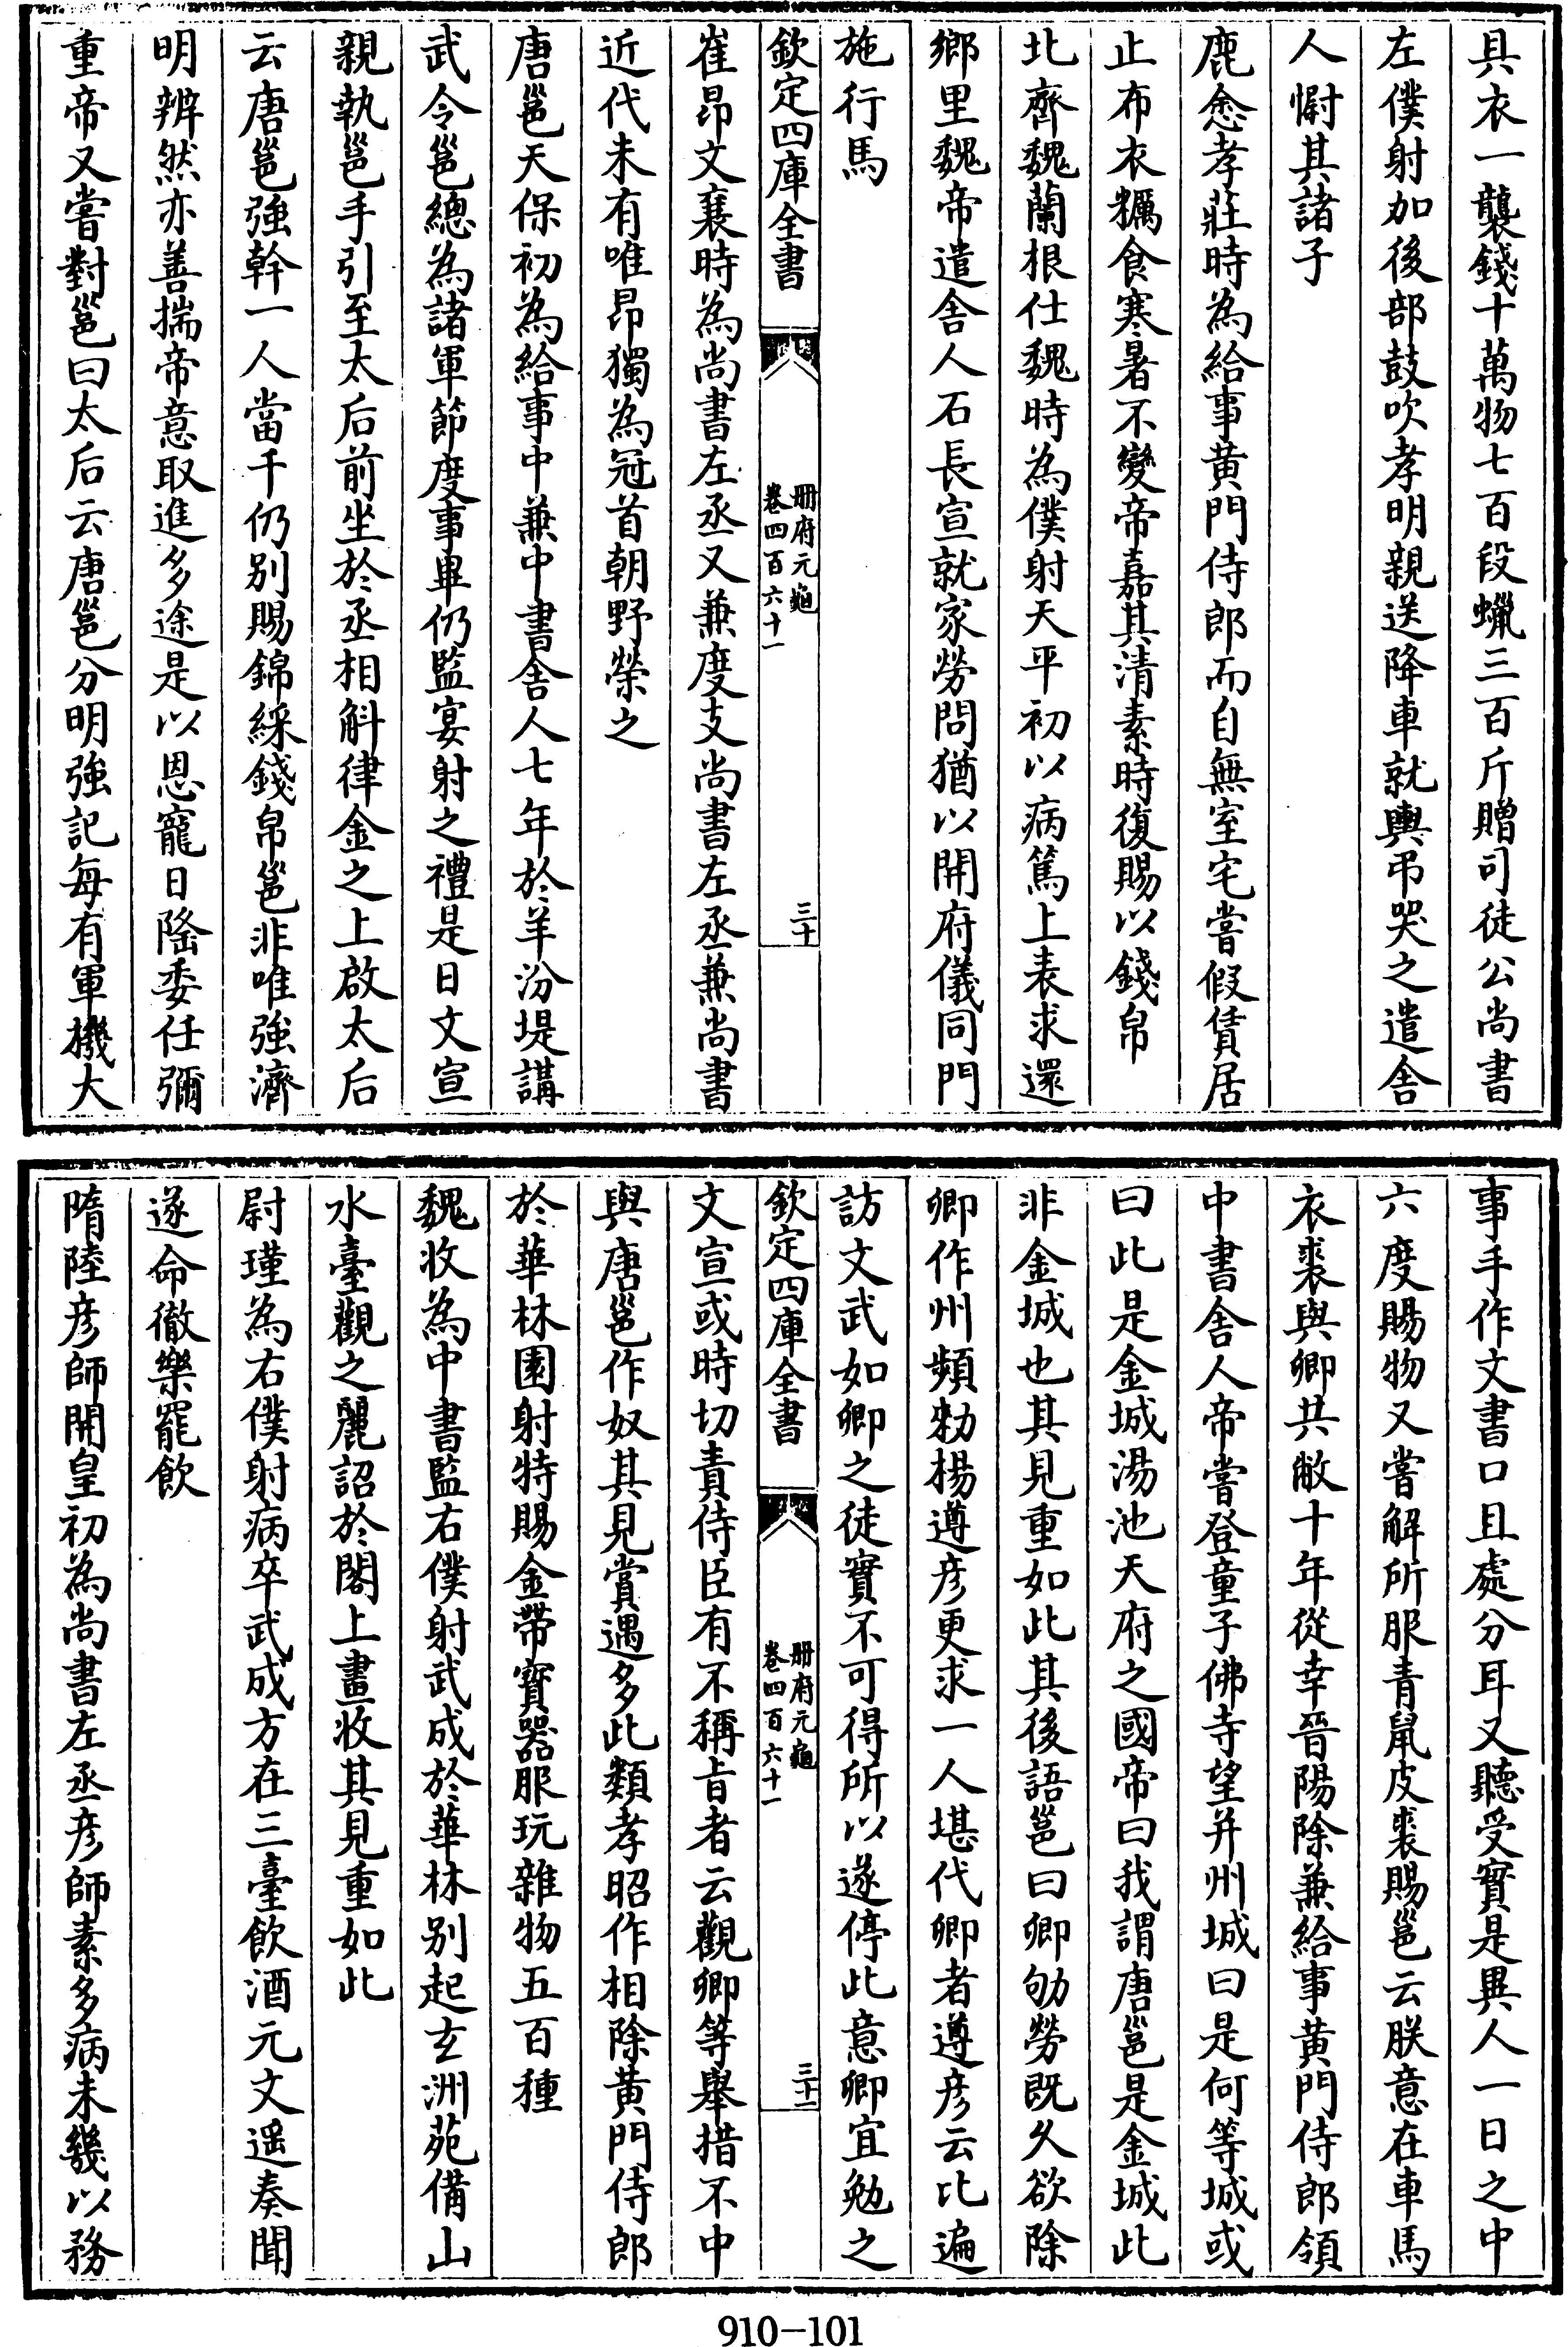 具衣一襲錢十萬物七百段蠟三百斤贈司徒公尚書
左僕射加後部鼓吹孝明親送降車就輿弔哭之遣舍
人慰其諸子
鹿悆孝莊時為給事黄門侍郎而自無室宅嘗假賃居
止布衣糲食寒暑不變帝嘉其清素時復賜以錢帛
北齊魏蘭根仕魏時為僕射天平初以病篤上表求還
鄉里魏帝遣舍人石長宣就家勞問猶以開府儀同門
施行馬
欽定四庫全書
册府元龜
卷四百六十一
三十
崔昂文襄時為尚書左丞又兼度支尚書左丞兼尚書
近代未有唯昂獨為冠首朝野榮之
唐邕天保初為給事中兼中書舍人七年於羊汾堤講
武令邕總為諸軍節度事畢仍監宴射之禮是日文宣
親執邕手引至太后前坐於丞相斛律金之上啟太后
云唐邕強幹一人當千仍别賜錦綵錢帛邕非唯強濟
明辨然亦善揣帝意取進多途是以恩寵日隆委任彌
重帝又嘗對邕曰太后云唐邕分明強記每有軍機大
事手作文書口且處分耳又聽受實是異人一日之中
六度賜物又嘗解所服青鼠皮裘賜邕云朕意在車馬
衣裘與卿共敝十年從幸晉陽除兼給事黄門侍郎領
中書舍人帝嘗登童子佛寺望并州城曰是何等城或
曰此是金城湯池天府之國帝曰我謂唐邕是金城此
非金城也其見重如此其後語邕曰卿劬勞既久欲除
卿作州頻勑楊遵彦更求一人堪代卿者遵彦云比遍
訪文武如卿之徒實不可得所以遂停此意卿宜勉之
欽定四庫全書
册府元龜
卷四百六十一
三十一
文宣或時切責侍臣有不稱旨者云觀卿等舉措不中
與唐邕作奴其見賞遇多此類孝昭作相除黄門侍郎
於華林園射特賜金帶寳器服玩雜物五百種
魏收為中書監右僕射武成於華林别起玄洲苑備山
水臺觀之麗詔於閣上畫收其見重如此
尉瑾為右僕射病卒武成方在三臺飲酒元文遥奏聞
遂命徹樂罷飲
隋陸彦師開皇初為尚書左丞彦師素多病未幾以務
910-101